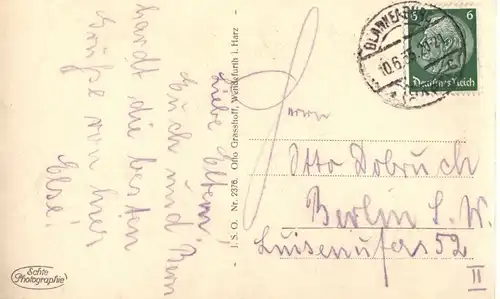 Liebe Eltern!
Euch und Bern
hardt die besten
Grüße von hier
Else.
I. S. O. Nr. 2376. Otto Grasshoff, Wendefurth i. Harz
Echte
Photographie
6
Deutsches Reich
BLANKENBURG
10.6.
Herrn
Otto Dobruch
Berlin S.W.
Luisenufer 52
II